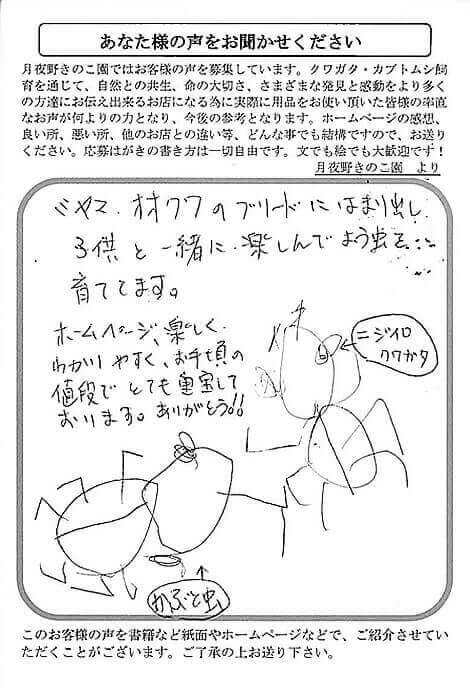 あなた様の声をお聞かせください
月夜野きのこ園ではお客様の声を募集しています。クワガタ・カブトムシ飼
育を通じて、自然との共生、命の大切さ、さまざまな発見と感動をより多く
の方達にお伝え出来るお店になる為に実際に用品をお使い頂いた皆様の率直
なお声が何よりの力となり、今後の参考となります。ホームページの感想、
良い所、悪い所、他のお店との違い等、どんな事でも結構ですので、お送り
ください。応募はがきの書き方は一切自由です。文でも絵でも大歓迎です！
月夜野きのこ園　より
ミヤマ、オオクワのブリードにはまり出し
子供と一緒に楽しんでよう虫を
育ててます。
ホームページ、楽しく
わかりやすく、お手頃の
値段でとても重宝して
おります。ありがとう!!
ニジイロ
クワガタ
かぶと虫
このお客様の声を書籍など紙面やホームページなどで、ご紹介させてい
ただくことがございます。ご了承の上お送り下さい。